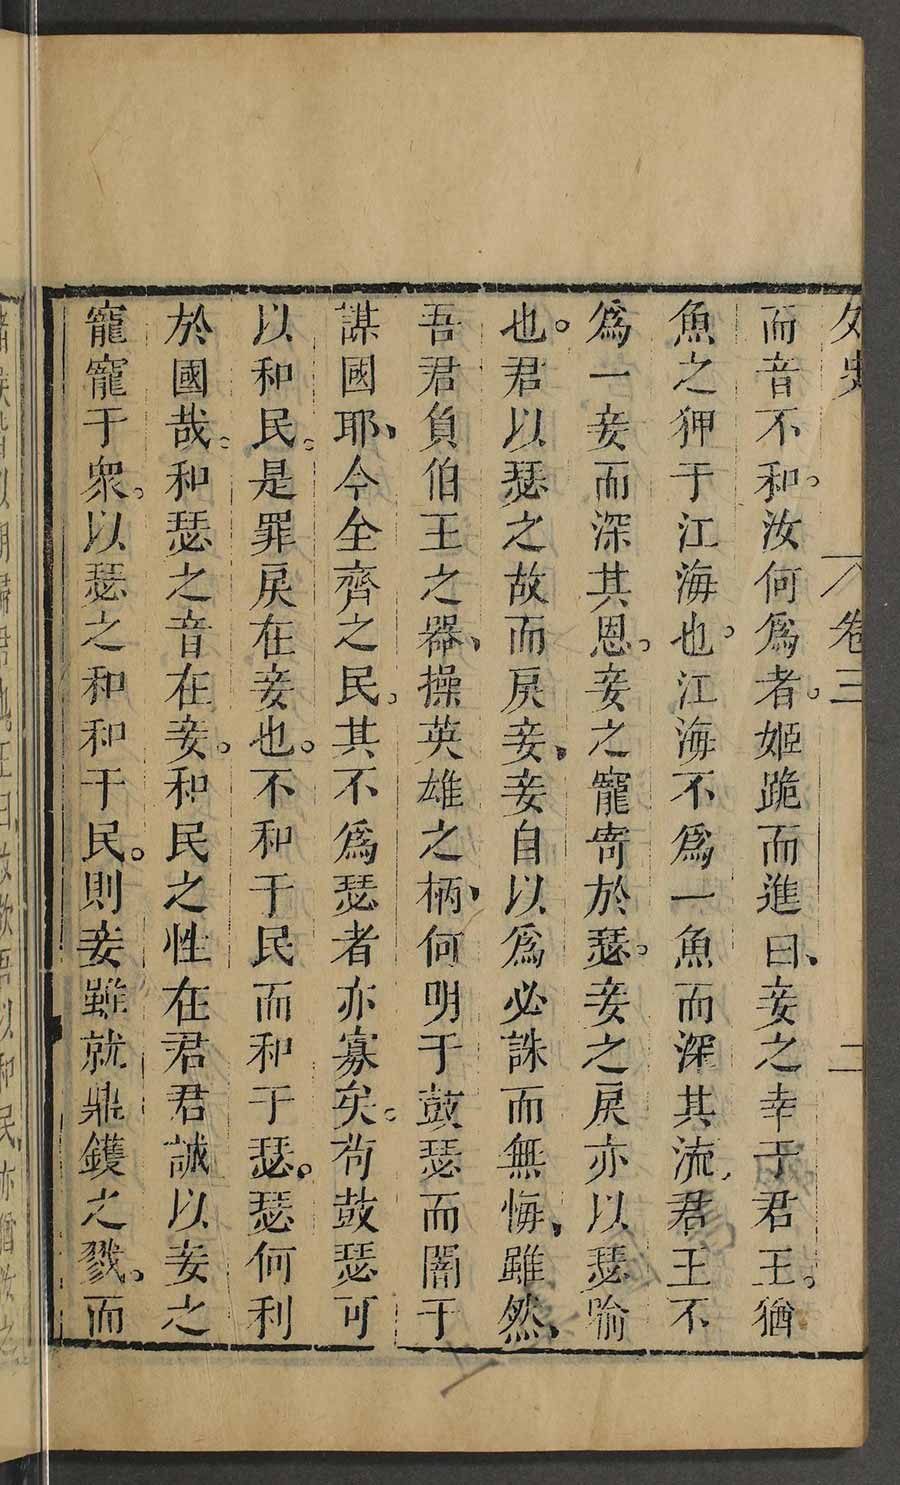 卷三 二
而音不和。汝何爲者。姬跪而進曰、妾之幸于君王。猶
魚之狎于江海也。江海不爲一魚而深其流、君王不
爲一妾而深其恩。妾之寵寄於瑟。妾之戾亦以瑟喻
也。君以瑟之故而戾妾、妾自以爲必誅而無悔、雖然、
吾君負伯王之器、操英雄之柄、何明于鼓瑟而闇于
謀國耶、今全齊之民。其不爲瑟者亦寡矣。苟鼓瑟可
以和民。是罪戾在妾也。不和于民而和于瑟。瑟何利
於國哉。和瑟之音在妾。和民之性在君君誠以妾之
寵寵于衆。以瑟之和和于民。則妾雖就鼎鑊之戮。而